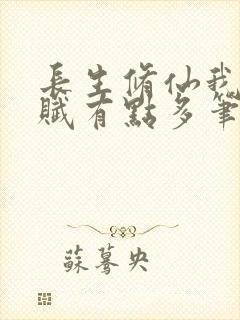 長生脩仙我
賦有點多筆
蘇驀央